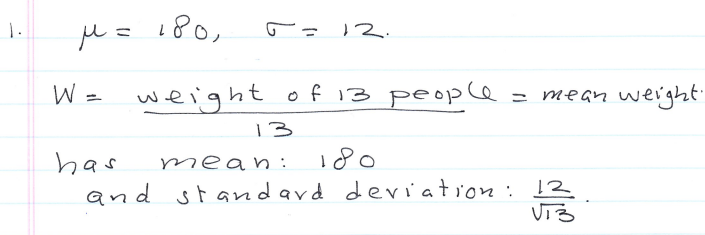 1. μ = 180, σ = 12.
W = weight of 13 people = mean weight.
13
has mean: 180
and standard deviation: 12/√13.